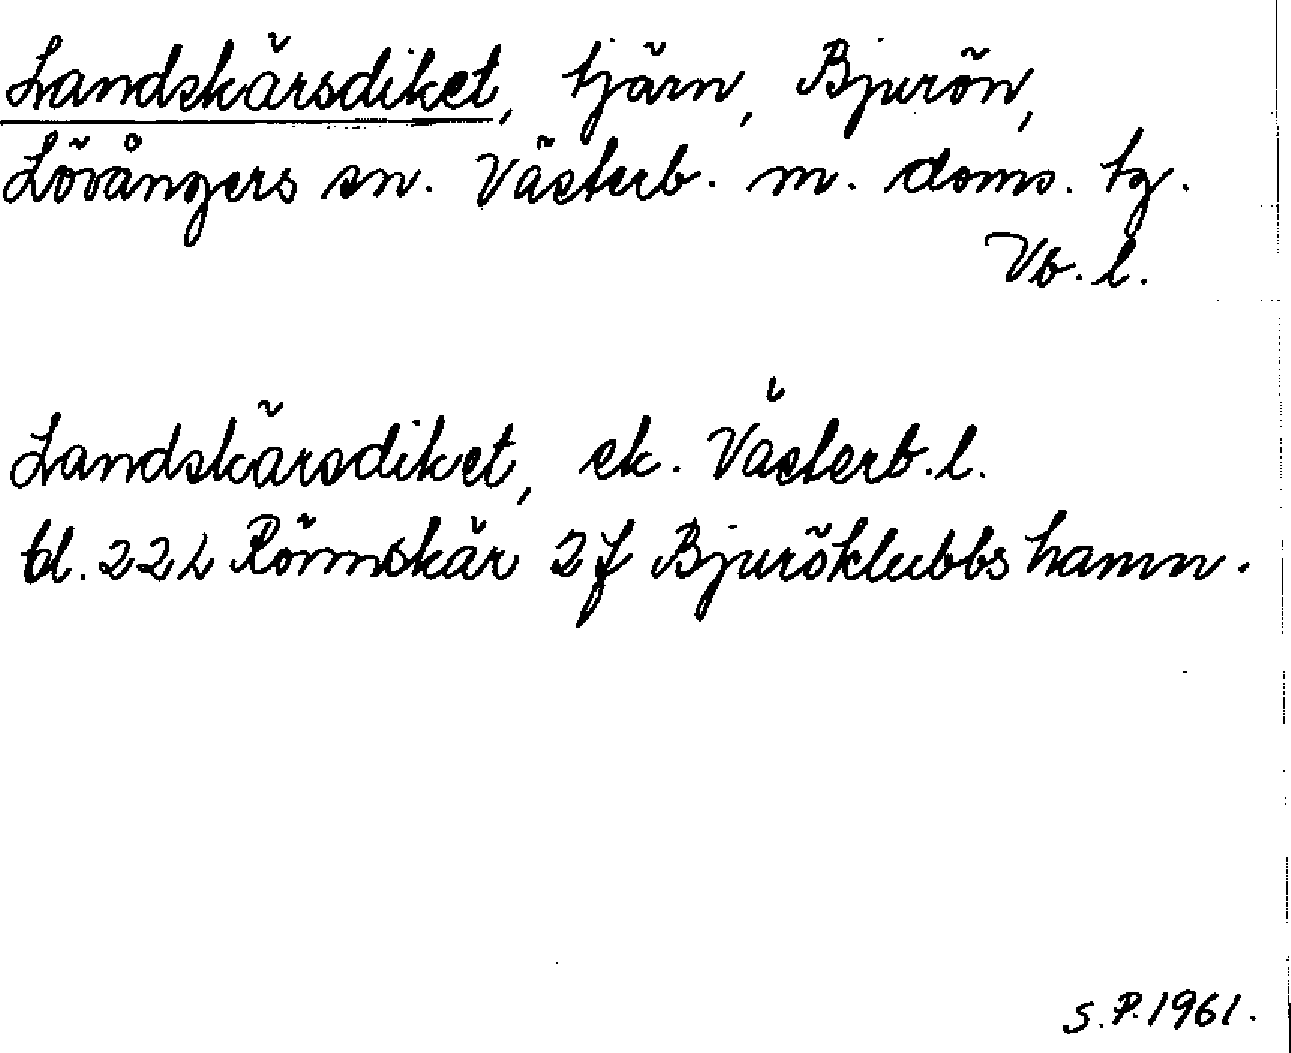 Landskärsdiket, tjärn, Bjurön,
Lövångers sn. Västerb. m. doms. tg.
Vb. l.
Landskärsdiket, ek. Västerb. l.
bl. 22 L Rönnskär 2 f Bjuröklubbs hamn.
S. P. 1961.